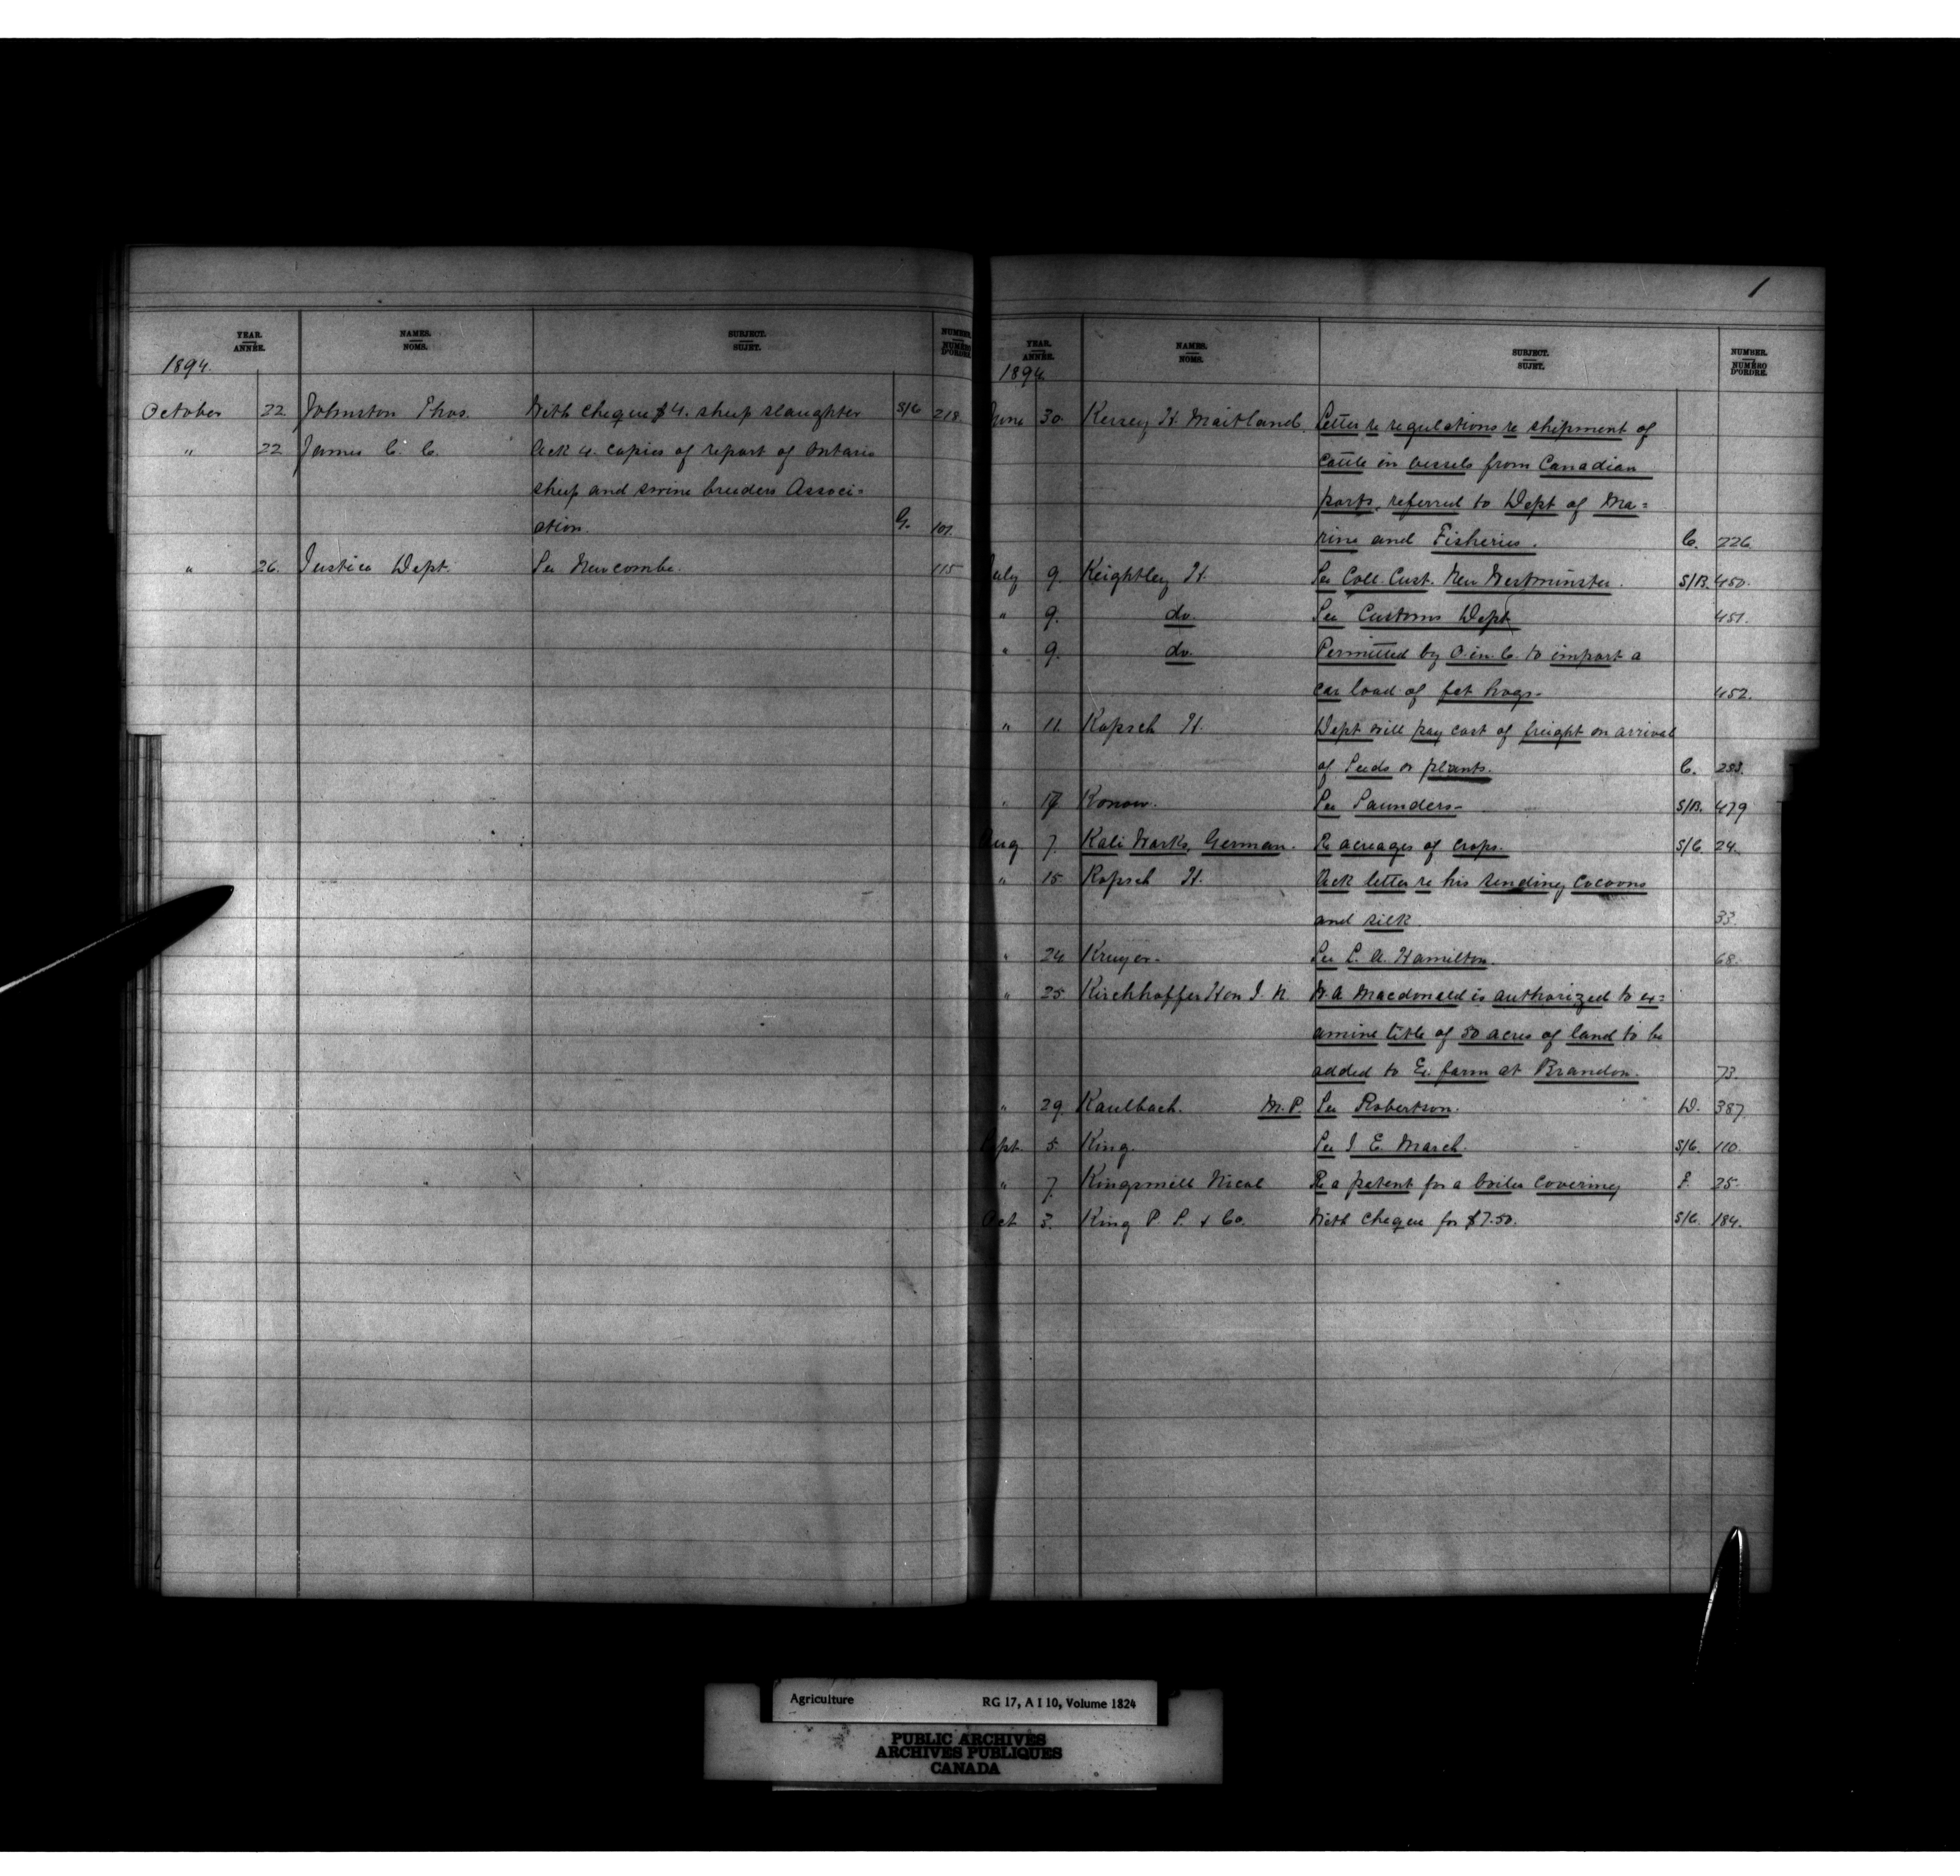 YEAR. ANNÉE. NAMES. NOMS. SUBJECT. SUJET. NUMBER. NUMÉRO D'ORDRE.
1894.
October 22 Johnston Thos. With cheque $4. sheep slaughter S/C 218
" 22 James C. C. Ack 4 copies of report of Ontario
sheep and swine breeders Associ=
" ation. G. 107.
" 26. Justice Dept. See Newcombe. 115
1
YEAR. ANNÉE. NAMES. NOMS. SUBJECT. SUJET. NUMBER. NUMÉRO D'ORDRE.
1894
June 30. Kersey H. Maitland. Letter re regulations re shipment of
cattle in vessels from Canadian
ports, referred to Dept of Ma=
rine and Fisheries. C. 226.
July 9. Keightley H. See Coll. Cust. New Westminster. S/B. 450.
" 9. do. See Customs Dept 451.
" 9. do. Permitted by O. in. C. to import a
car load of fat hogs. 452.
" 11. Kopsch H. Dept will pay cost of freight on arrival
of Seeds or plants. C. 253.
" 17 Konow. See Saunders S/B. 479
Aug 7. Kali Works, German. Re acreages of crops. S/C. 24.
" 15 Kopsch H. Ack letter re his sending cocoons
and silk. 33.
" 24 Kruger. See L. A. Hamilton. 68.
" 25 Kirchhoffer Hon J. N. W. A Macdonald is authorized to ex=
amine title of 50 acres of land to be
added to Ex. farm at Brandon. 73.
" 29. Kaulbach. M.P. See Robertson. D. 387
Sept. 5 King. See J. E. March. S/C. 110.
" 7. Kingsmill Nicol Re a patent for a boiler covering F. 25.
Oct 3. King P. S. & Co. With cheque for $7.50. S/C. 184.
Agriculture RG 17, A I 10, Volume 1824
PUBLIC ARCHIVES
ARCHIVES PUBLIQUES
CANADA